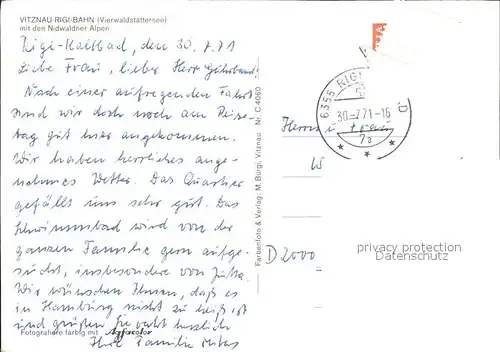 VITZNAU-RIGI-BAHN (Vierwaldstättersee)
mit den Nidwaldner Alpen
Rigi-Kaltbad, den 30.7.71
Liebe Frau, lieber Herr
Nach einer aufregenden Fahrt
sind wir doch noch am Reise-
tag gut hier angekommen.
Wir haben herrliches ange-
nehmes Wetter. Das Quartier
gefällt uns sehr gut. Das
Schwimmbad wird von der
ganzen Familie gern aufge-
sucht, insbesondere von Jutta.
Wir wünschen Ihnen, daß es
in Hamburg nicht zu heiß ist
und grüßen Sie recht herzlich
Ihre Familie
Fotografiere farbig mit Agfacolor
Farbenfoto & Verlag: M. Bürgi, Vitznau Nr. C 4060
6355 RIGI
30.-7.71-16
7a
Herrn u Frau
D 2000
privacy protection
Datenschutz.